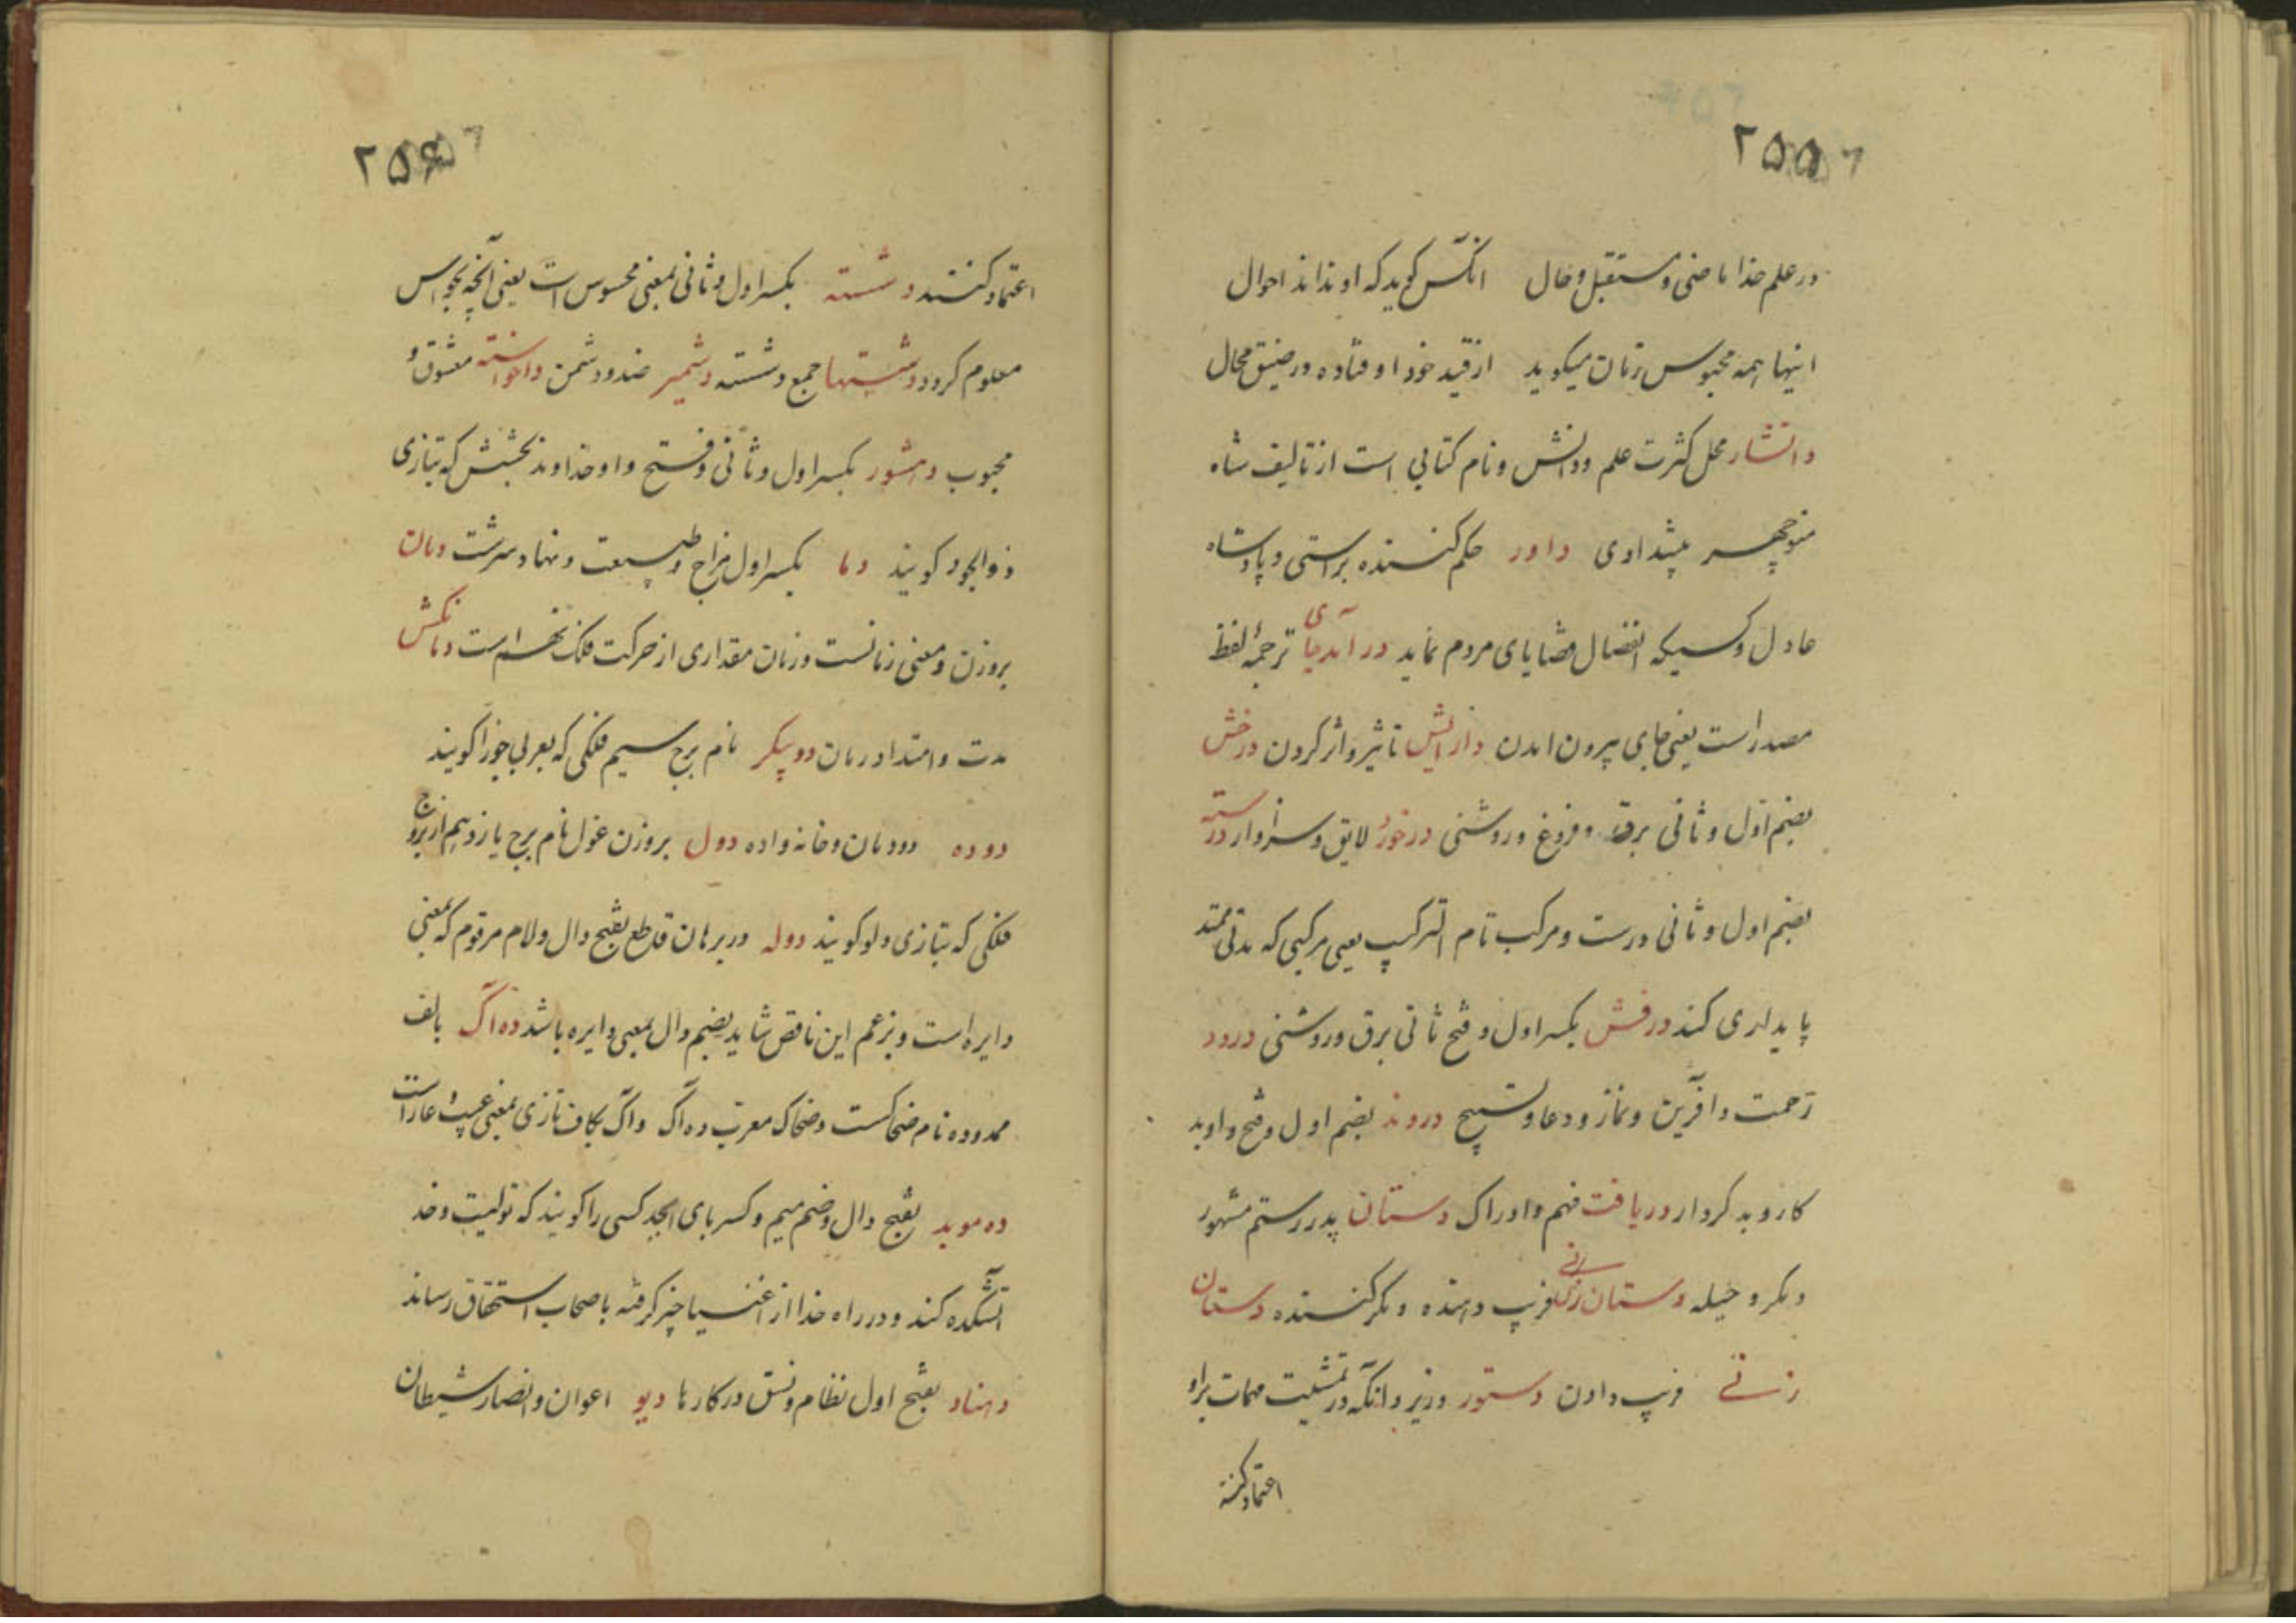 ۲۵۵
در علم خدا ماضی و مستقبل و حال انکس کوید که او نداند احوال
اینها همه محبوس زمان میکوید از قید خود اوفتاده در ضیق محال
دانشار محل کثرت علم و دانش و نام کتابی است از تالیف شاه
منوچهر پیشدادی داور حکم کننده براستی و پادشاه
عادل و کسیکه انفصال قضایای مردم نماید درآمدجای ترجمهٔ لفظ
مصدر است یعنی جای بیرون امدن درایش تاثیر و اثر کردن درخش
بضم اول و ثانی برق و فروغ و روشنی درخور لایق و سزاوار درسته
بضم اول و ثانی درست و مرکب تام الترکیب یعنی مرکبی که مدتی ممتد
پایداری کند درفش بکسر اول و فتح ثانی برق و روشنی درود
رحمت و آفرین و نماز و دعا و تسبیح دروند بضم اول و فتح واو بد
کار و بد کردار دریافت فهم و ادراک دستان پدر رستم مشهور
و مکر و حیله دستان زن فریب دهنده و مکر کننده دستان
زنی فریب دادن دستور وزیر و آنکه در تمشیت مهمات براو
اعتماد کنند
۲۵۶
اعتماد کنند دشسته بکسر اول و ثانی بمعنی محسوس است یعنی آنچه بحواس
معلوم کردد دشستها جمع دشسته دشمیر ضد و دشمن داخواسته معشوق و
محبوب دهشور بکسر اول و ثانی و فتح واو خداوند بخشش که بتازی
ذوالجود کویند دما بکسر اول مزاج و طبیعت و نهاد و سرشت دمان
بروزن و معنی زمانست و زمان مقداری از حرکت فلک نهم است دمانکش
مدت و امتداد زمان دوپیکر نام برج سیم فلکی که بعربی جوزا کویند
دوده دودمان و خانه واده دول بروزن غول نام برج یازدهم از بروج
فلکی که بتازی دلو کویند دوله در برهان قاطع بفتح دال و لام مرقوم که بمعنی
دایره است و بزعم این ناقص شاید بضم دال بمعنی دایره باشد ده آک بالف
ممدوده نام ضحاکست و ضحاک معرب ده آک و آک بکاف تازی بمعنی عیب و عار است
ده موبد بفتح دال و ضم میم و کسر بای ابجد کسی را کویند که تولیت و خد
آتشکده کند و در راه خدا از اغنیا چیز کرفته باصحاب استحقاق رساند
دهناد بفتح اول نظام و نسق در کارها دیو اعوان و انصار شیطان